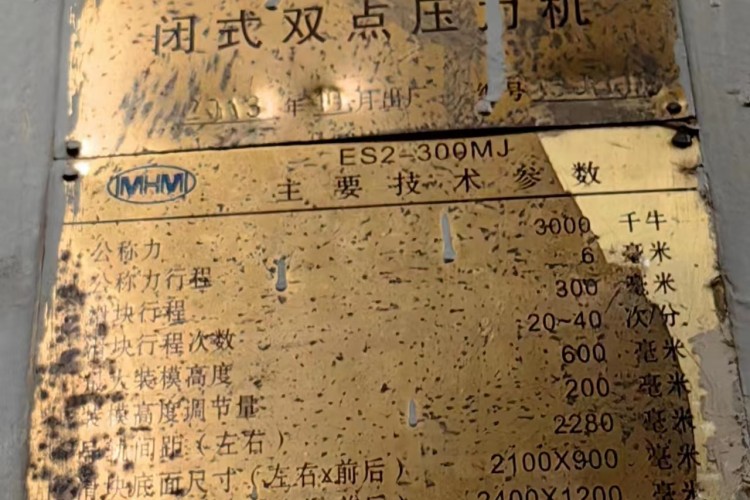 闭式双点压力机
2013 年 11 月出厂 编号
ES2-300MJ
MHM 主要技术参数
公称力 3000 千牛
公称力行程 6 毫米
滑块行程 300 毫米
滑块行程次数 20~40 次/分
最大装模高度 600 毫米
装模高度调节量 200 毫米
间距(左右) 2280 毫米
滑块底面尺寸(左右x前后) 2100X900 毫米
2400X1200